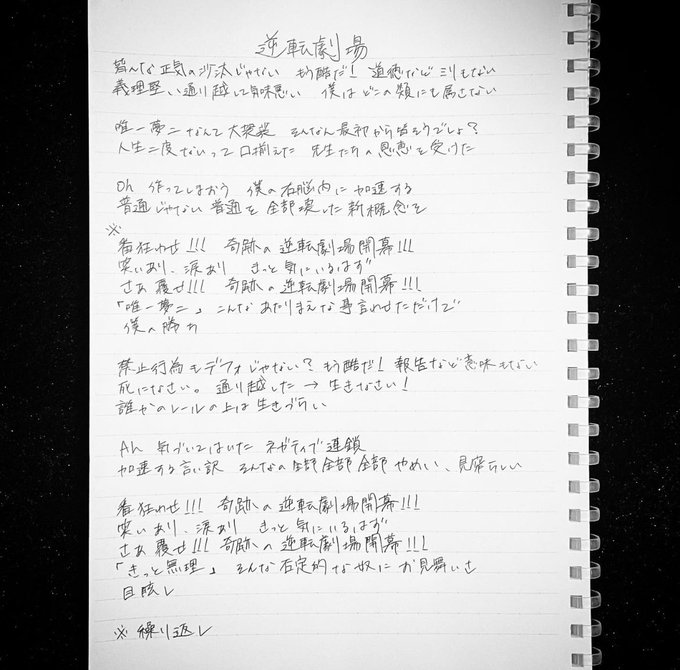 逆転劇場
皆んな正気の沙汰じゃない もう酷だ! 道徳など ミリもない
義理堅い通り越して気味悪い 僕はどこの類にも属さない
唯一夢ニなんて大袈裟 そんなん最初から皆そうでしょ?
人生二度ないって口揃えた 先生たちの恩恵を受けた
Oh 作ってしまおう 僕の右脳内に加速する
普通じゃない普通を全部壊した新概念を
※
番狂わせ!!! 奇跡の逆転劇場開幕!!!
笑いあり、涙あり きっと気にいるはず
さあ覆せ!!! 奇跡の逆転劇場開幕!!!
「唯一夢ニ」こんなあたりまえな事言わせただけで
僕の勝ち
禁止行為もデフォじゃない? もう酷だ! 報告など意味もない
死になさい。通り越した → 生きなさい!
誰かのレールの上は生きづらい
Ah 気づいてはいた ネガティブ連鎖
加速する言い訳 そんなの全部全部全部 やめい、見窄らしい
番狂わせ!!! 奇跡の逆転劇場開幕!!!
笑いあり、涙あり きっと気にいるはず
さあ覆せ!!! 奇跡の逆転劇場開幕!!!
「きっと無理」 そんな否定的な奴に お見舞いさ
目眩し
※ 繰り返し